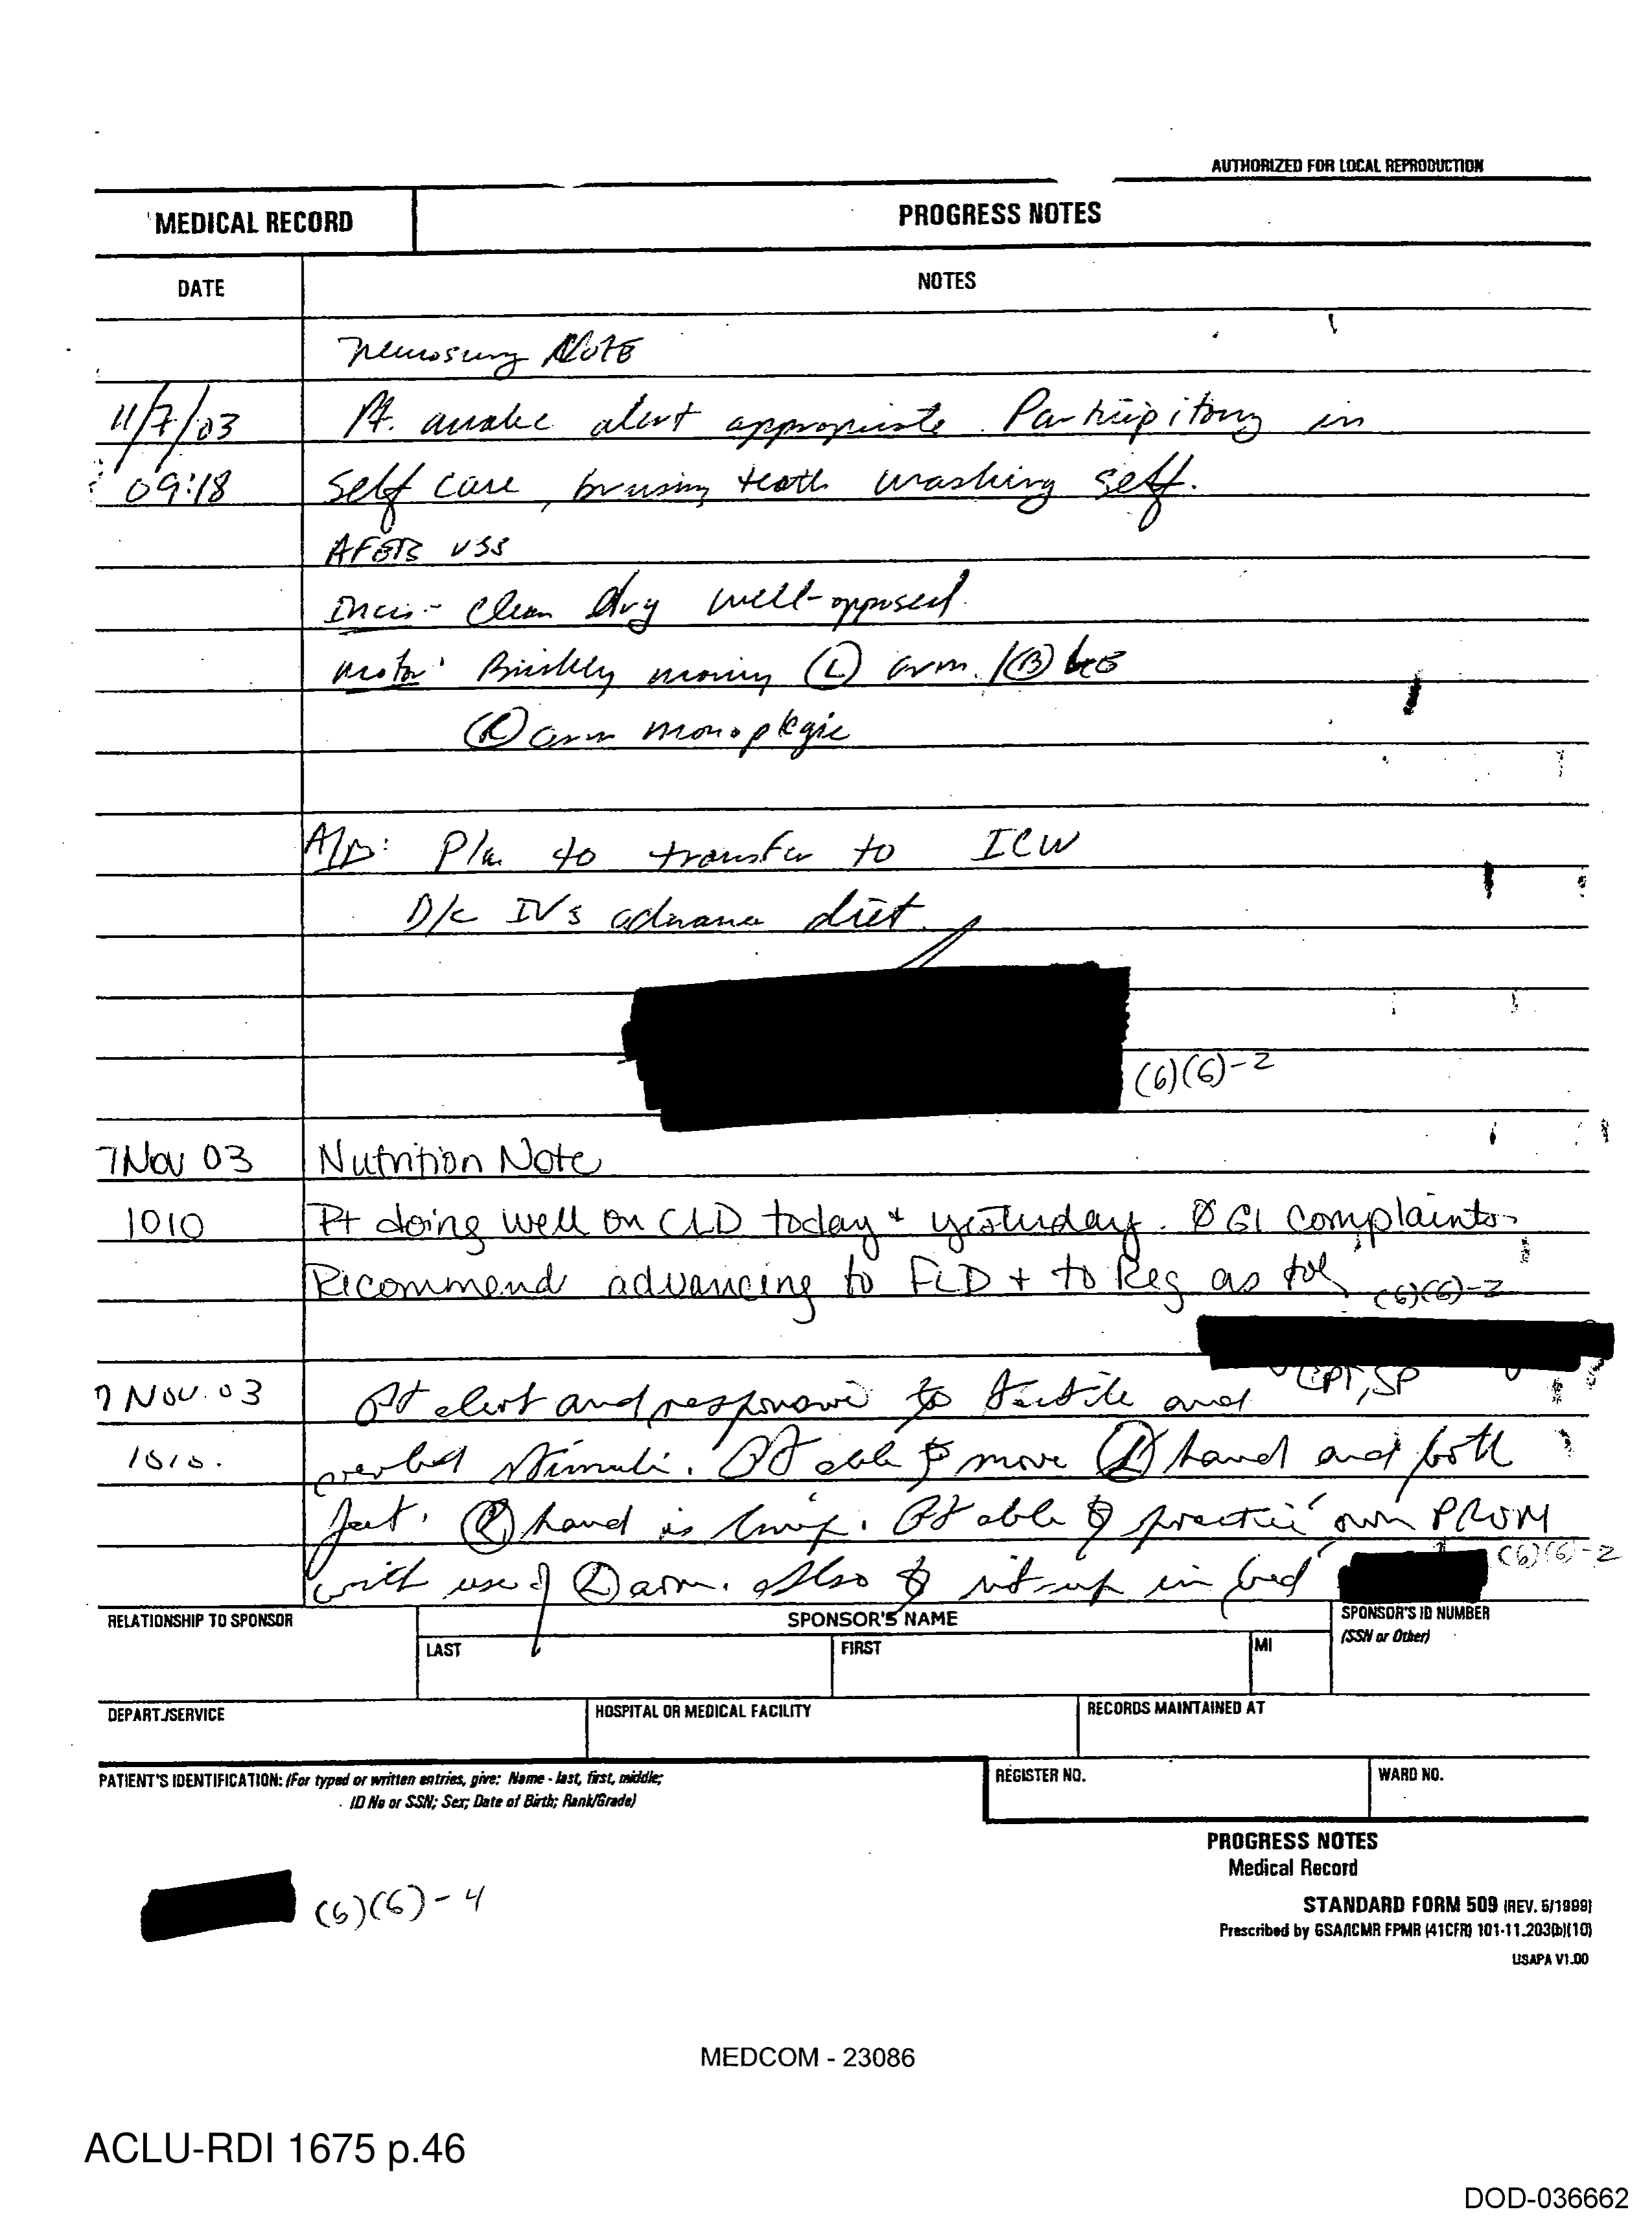 AUTHORIZED FOR LOCAL REPRODUCTION
MEDICAL RECORD
PROGRESS NOTES
DATE
NOTES
Neurosurg Note
11/7/03 Pt. awake alert appropriate. Participitory in
09:18 self care, brusing teeth washing self.
AFEB VSS
Incis - Clean dry well-opposed.
motor: Briskly moving (L) arm /(B) LE
(R) arm monoplegic
A/P: Plan to transfer to ICW
D/c IVs advance diet
(6)(6)-2
7 Nov 03 Nutrition Note
1010 Pt doing well on CLD today + yesterday. Ø GI complaints.
Recommend advancing to FLD + to Reg as tol
(6)(6)-2
CPT, SP
7 Nov. 03 Pt alert and responsive to tactile and
1010. verbal stimuli. Pt able to move (L) hand and both
feet. (R) hand is limp. Pt able to practice own PROM
with use of (L) arm. Also to sit-up in bed
(6)(6)-2
RELATIONSHIP TO SPONSOR
SPONSOR'S NAME
LAST
FIRST
MI
SPONSOR'S ID NUMBER
(SSN or Other)
DEPART./SERVICE
HOSPITAL OR MEDICAL FACILITY
RECORDS MAINTAINED AT
PATIENT'S IDENTIFICATION: (For typed or written entries, give: Name - last, first, middle;
ID No or SSN; Sex; Date of Birth; Rank/Grade)
REGISTER NO.
WARD NO.
PROGRESS NOTES
Medical Record
STANDARD FORM 509 (REV. 5/1999)
Prescribed by GSA/ICMR FPMR (41CFR) 101-11.203(b)(10)
USAPA V1.00
(6)(6)-4
MEDCOM - 23086
ACLU-RDI 1675 p.46
DOD-036662